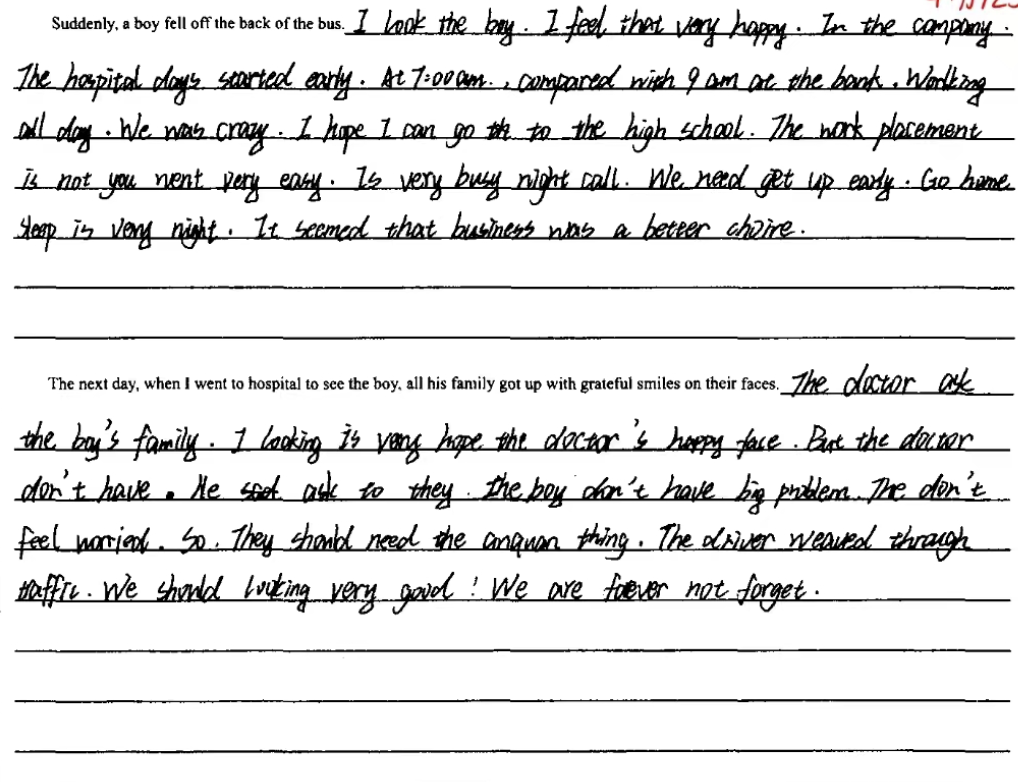 Suddenly, a boy fell off the back of the bus. I look the boy. I feel that very happy. In the company.
The hospital days started early. At 7:00 am., compared with 9 am at the bank. Working
all day. We was crazy. I hope I can go th to the high school. The work placement
is not you went very easy. Is very busy night call. We need get up early. Go home
sleep is very night. It seemed that business was a better choire.
The next day, when I went to hospital to see the boy, all his family got up with grateful smiles on their faces. The doctor ask
the boy's family. I looking is very hope the doctor's happy face. But the doctor
don't have. He ask to they. the boy don't have big problem. The don't
feel worried. So. They should need the anquan thing. The driver weaved through
traffic. We should looking very good! We are forever not forget.